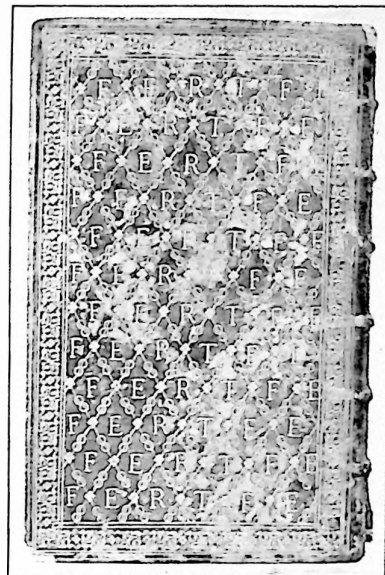 F E R T F E
F E R T F E
F E R T F E
F E R T F E
F E R T F E
F E R F F
F E R T F E
F E R T F
F E R T F E
F E R T E E
F E R T F E
F E R T F E